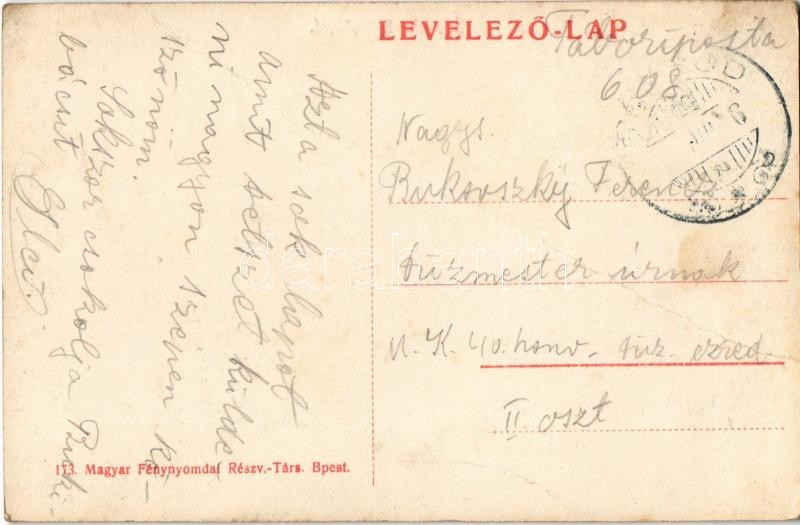 LEVELEZŐ-LAP
Tábori posta
608
Nagys.
Bukovszky Ferencz
tűzmester úrnak
M. K. 40. honv. tüz. ezred
II oszt
Azt a sok lapot
amit tetszet külde-
ni nagyon szépen kö-
szönöm.
Sokszor csokolja Buki-
bácsit
173. Magyar Fénynyomdai Részv.-Társ. Bpest.
darabanth